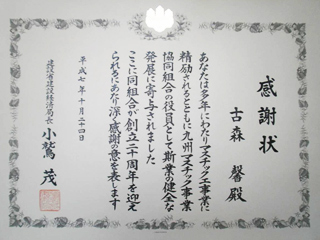 感謝状
古森 馨殿
あなたは多年にわたりマスチック工事業に
精励されるとともに九州マスチック事業
協同組合の役員として斯業の健全な
発展に寄与されました
ここに同組合が創立二十周年を迎え
られるにあたり深く感謝の意を表します
平成七年十月二十四日
建設省建設経済局長 小鷲 茂